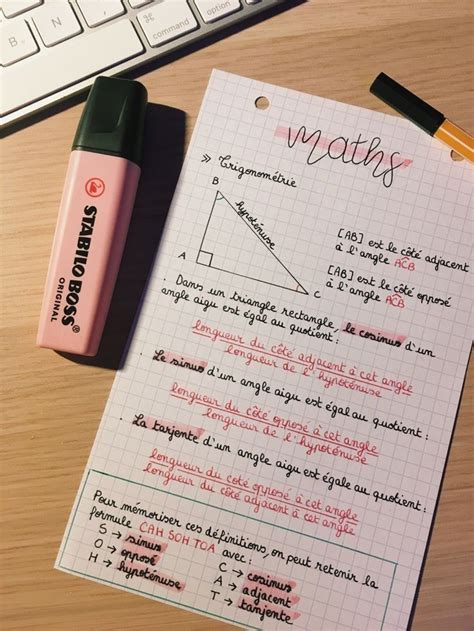 B
N
⌘
command
option
STABILO BOSS
ORIGINAL
maths
» Trigonométrie
B
hypoténuse
A
C
[AB] est le côté adjacent
à l'angle ACB
[AB] est le côté opposé
à l'angle ACB
. Dans un triangle rectangle, le cosinus d'un
angle aigu est égal au quotient :
longueur du côté adjacent à cet angle
longueur de l'hypoténuse
. Le sinus d'un angle aigu est égal au quotient :
longueur du côté opposé à cet angle
longueur de l'hypoténuse
. La tanjente d'un angle aigu est égale au quotient :
longueur du côté opposé à cet angle
longueur du côté adjacent à cet angle
Pour mémoriser ces définitions, on peut retenir la
formule CAH SOH TOA avec :
S → sinus
O → opposé
H → hypoténuse
C → cosinus
A → adjacent
T → tanjente